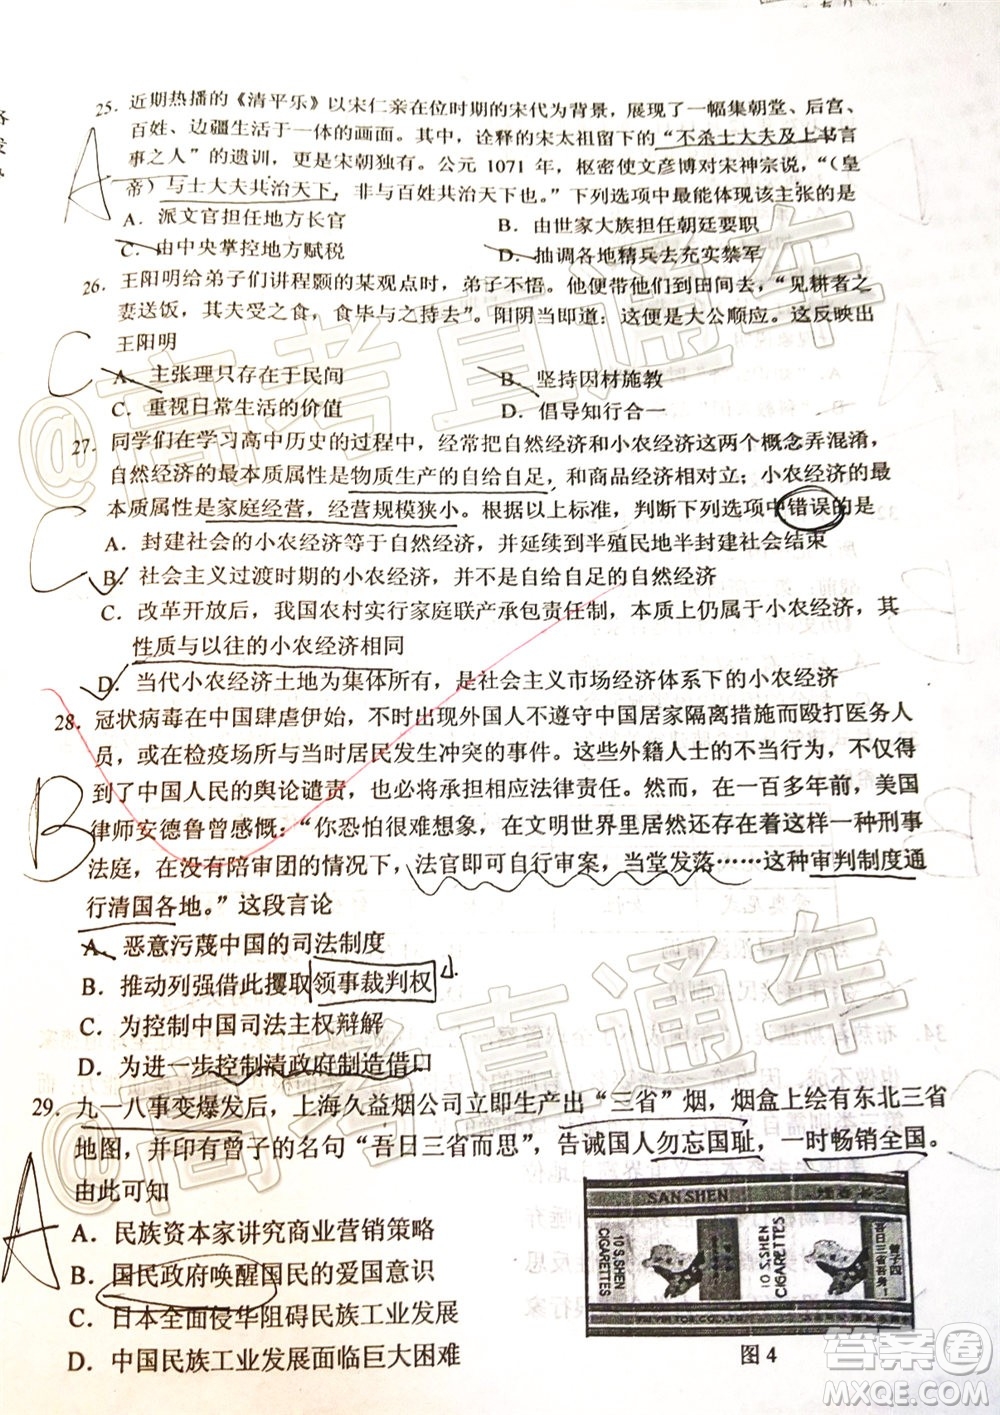 25. 近期热播的《清平乐》以宋仁亲在位时期的宋代为背景，展现了一幅集朝堂、后宫、
百姓、边疆生活于一体的画面。其中，诠释的宋太祖留下的“不杀士大夫及上书言
事之人”的遗训，更是宋朝独有。公元 1071 年，枢密使文彦博对宋神宗说，“（皇
帝）与士大夫共治天下，非与百姓共治天下也。”下列选项中最能体现该主张的是
A. 派文官担任地方长官
B. 由世家大族担任朝廷要职
C. 由中央掌控地方赋税
D. 抽调各地精兵去充实禁军
A
26. 王阳明给弟子们讲程颢的某观点时，弟子不悟。他便带他们去田间，“见耕者之
妻送饭，其夫受之食，食毕与之持去”。阳明当即道：这便是大公顺应。这反映出
王阳明
A. 主张理只存在于民间
B. 坚持因材施教
C. 重视日常生活的价值
D. 倡导知行合一
C
27. 同学们在学习高中历史的过程中，经常把自然经济和小农经济这两个概念弄混淆，
自然经济的最本质属性是物质生产的自给自足，和商品经济相对；小农经济的最
本质属性是家庭经营，经营规模狭小。根据以上标准，判断下列选项中错误的是
A. 封建社会的小农经济等于自然经济，并延续到半殖民地半封建社会结束
B. 社会主义过渡时期的小农经济，不是自给自足的自然经济
C. 改革开放后，我国农村实行家庭联产承包责任制，本质上仍属于小农经济，其
性质与以往的小农经济相同
D. 当代小农经济土地为集体所有，是社会主义市场经济体系下的小农经济
C
28. 冠状病毒在中国肆虐伊始，不时出现外国人不遵守中国居家隔离措施而殴打医务人
员，或在检疫场所与当时居民发生冲突的事件。这些外籍人士的不当行为，不仅得
到了中国人民的舆论谴责，也将承担相应法律责任。但在一百多年前，美国
律师安德鲁曾感慨：“你恐怕很难想象，在文明世界里居然还存在着这样一种刑事
法庭，在没有陪审团的情况下，法官即可自行审案，当堂发落……这种审判制度通
行清国各地。”这段言论
A. 恶意污蔑中国的司法制度
B. 推动列强借此攫取领事裁判权
C. 为控制中国司法主权辩解
D. 为进一步控制清政府制造借口
B
29. 九一八事变爆发后，上海久益烟公司立即生产出“三省”烟，烟盒上绘有东北三省
地图，并印有曾子的名句“吾日三省而思”，告诫国人勿忘国耻，一时畅销全国。
由此可知
A. 民族资本家讲究商业营销策略
B. 国民政府唤醒国民的爱国意识
C. 日本全面侵华阻碍民族工业发展
D. 中国民族工业发展面临巨大困难
A
SAN SHEN
10 S.SHEN
CIGARETTES
10 S.SHEN
CIGARETTES
曾子四
吾日三省吾身
图 4
@高考直通车
@高考直通车
答案卷
MXQE.COM